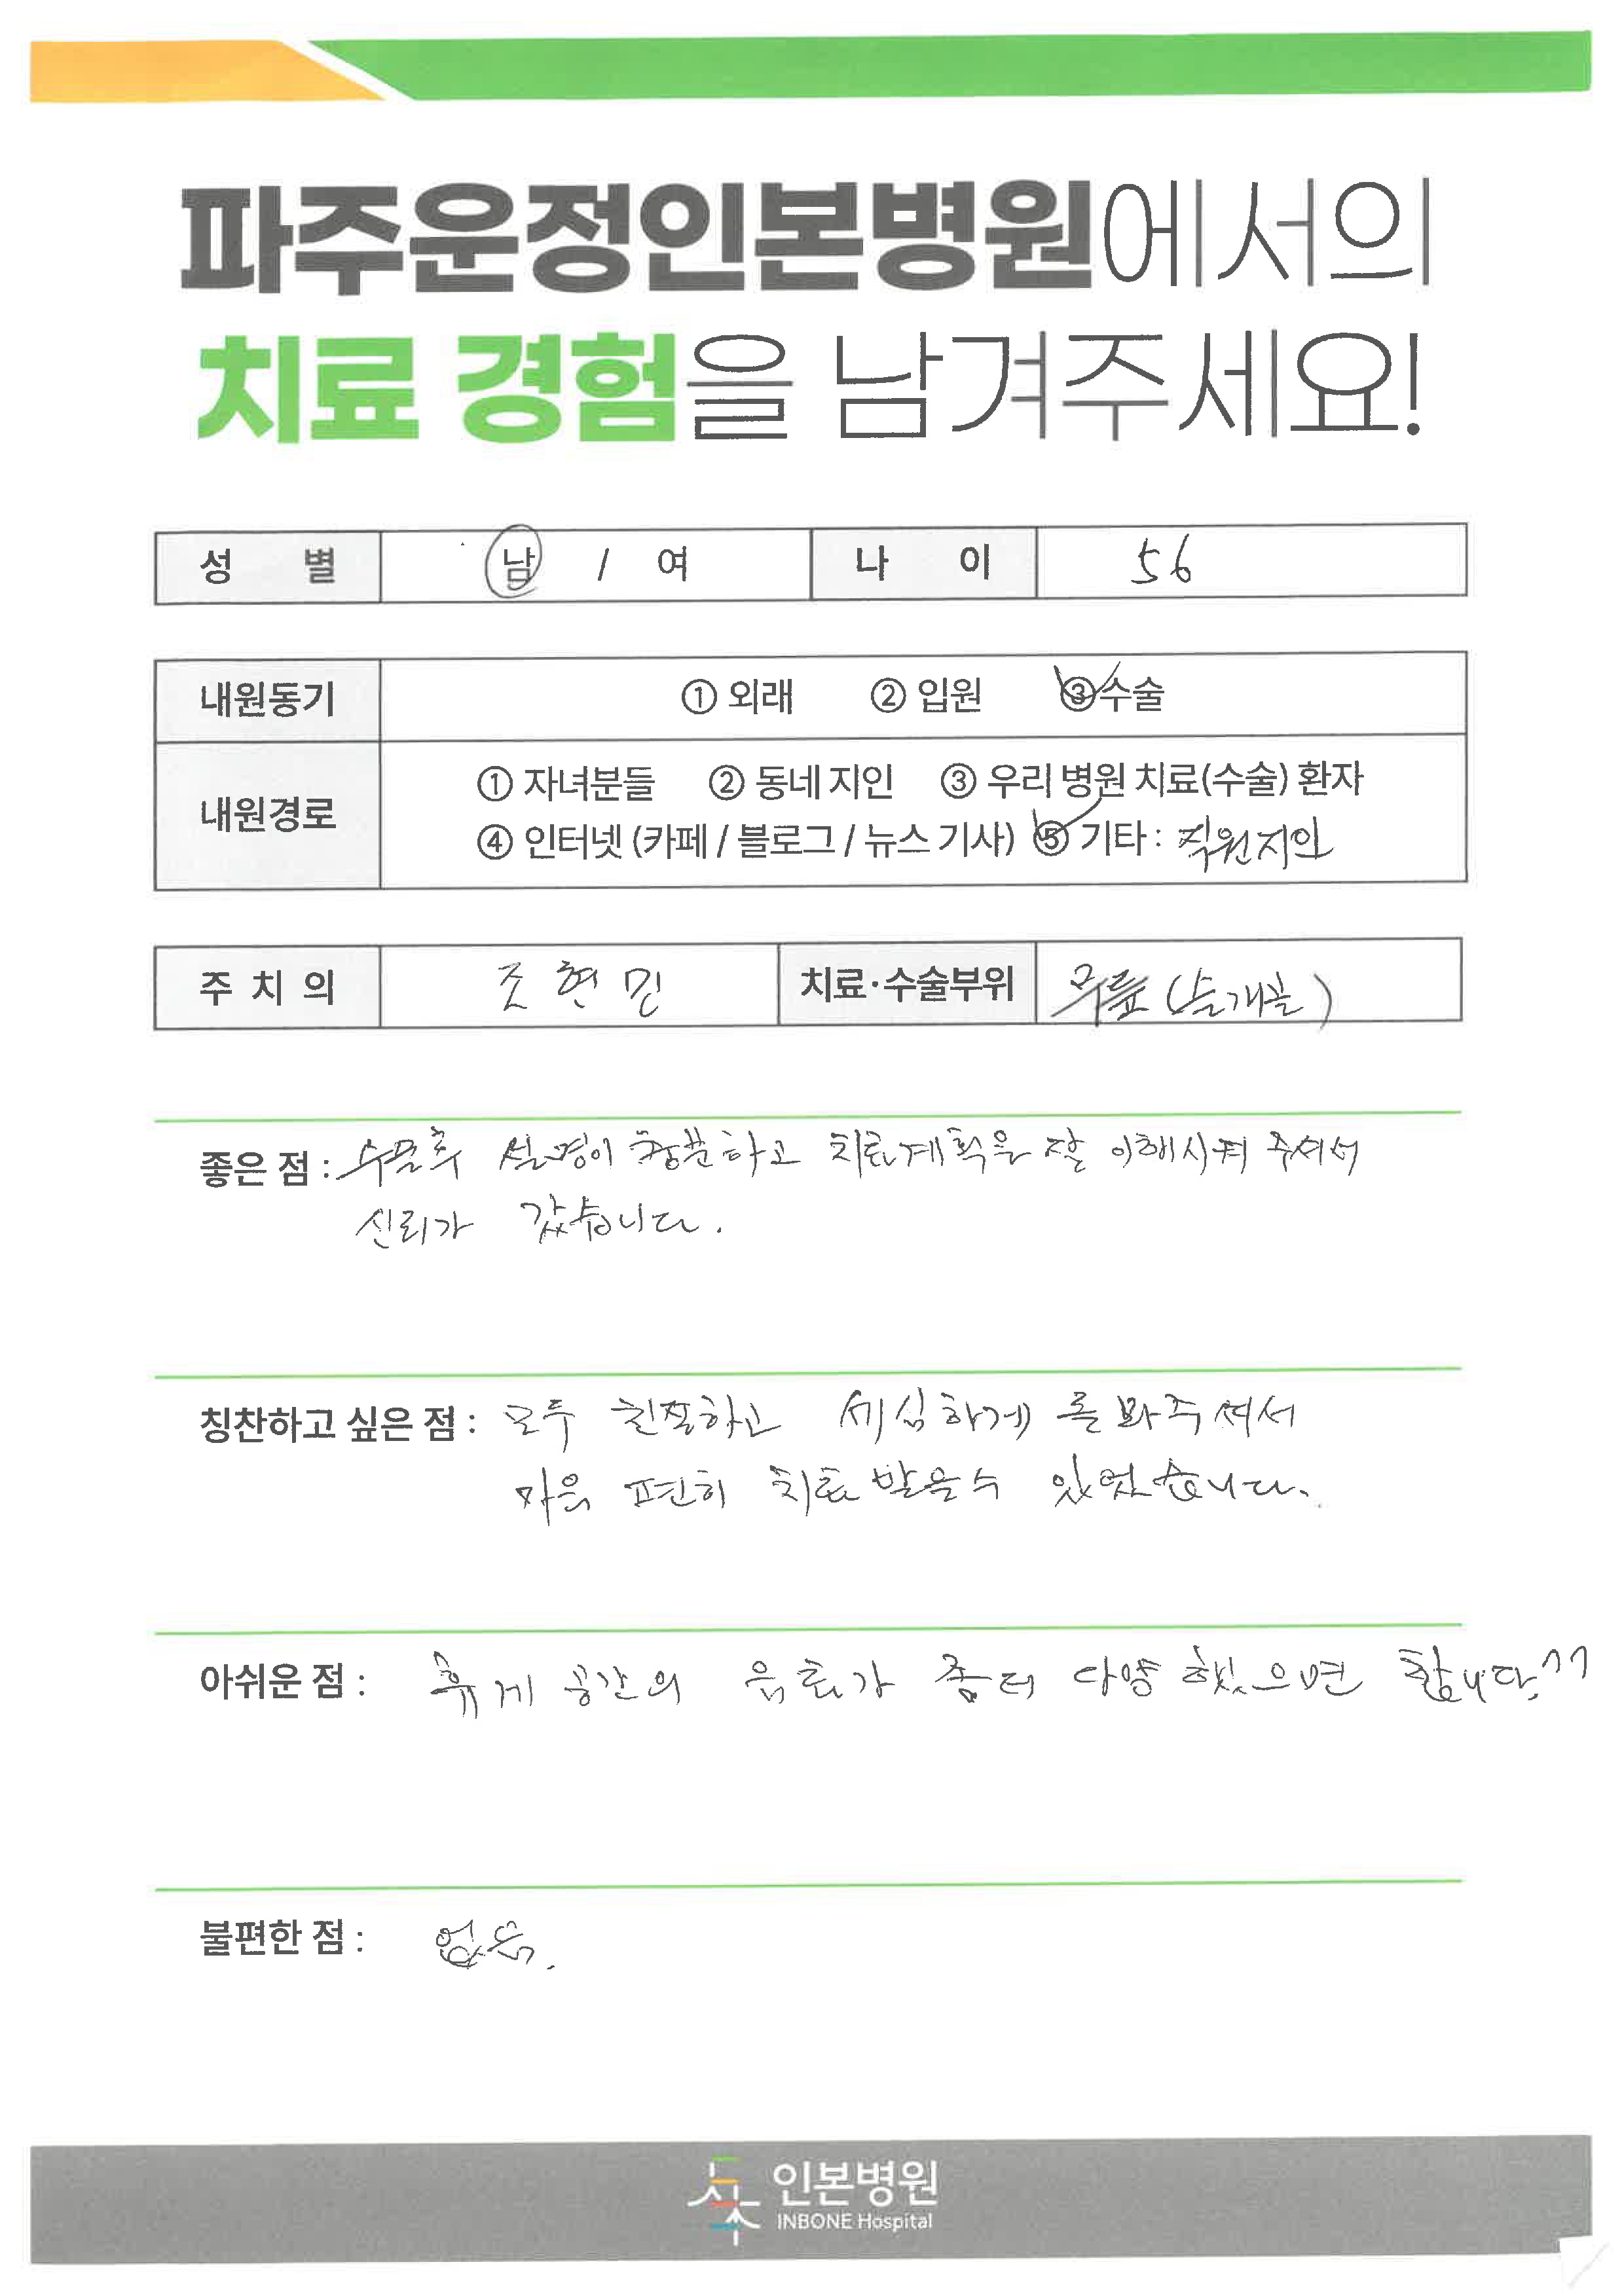 파주운정인본병원에서의
치료 경험을 남겨주세요!
성 별 남 / 여 나 이 56
내원동기 ① 외래 ② 입원 ③ 수술
내원경로 ① 자녀분들 ② 동네 지인 ③ 우리 병원 치료(수술) 환자
④ 인터넷 (카페 / 블로그 / 뉴스 기사) ⑤ 기타 : 직원지인
주 치 의 조 현 민 치료·수술부위 무릎 (슬개골)
좋은 점 : 설명이 충분하고 치료계획을 잘 이해시켜 주셔서
신뢰가 갔습니다.
칭찬하고 싶은 점 : 모두 친절하고 세심하게 돌봐주셔서
마음 편히 치료 받을수 있었습니다.
아쉬운 점 : 휴게 공간의 음료가 좀더 다양했으면 합니다.^^
불편한 점 : 없음.
인본병원
INBONE Hospital